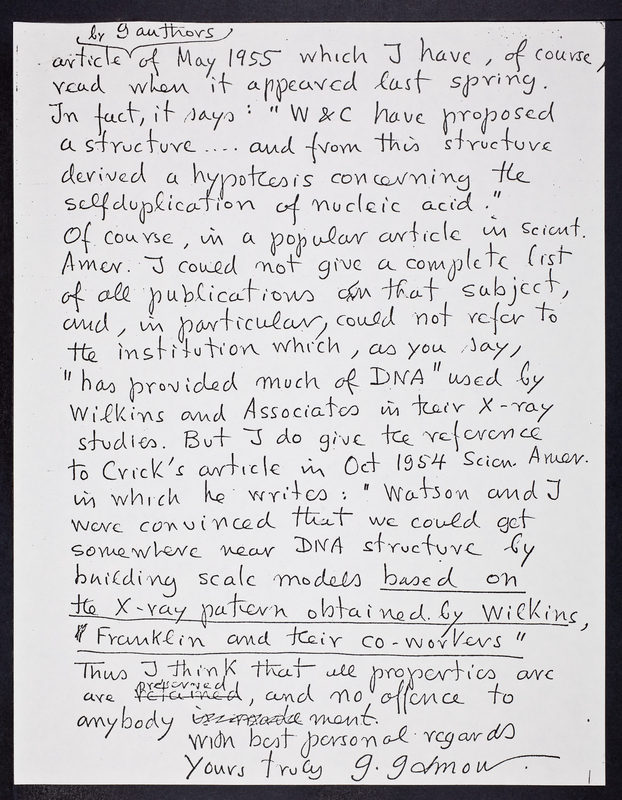 by 9 authors
article of May 1955 which I have, of course,
read when it appeared last spring.
In fact, it says: "W & C have proposed
a structure .... and from this structure
derived a hypothesis concerning the
selfduplication of nucleic acid."
Of course, in a popular article in Scient.
Amer. I could not give a complete list
of all publications on that subject,
and, in particular, could not refer to
the institution which, as you say,
"has provided much of DNA" used by
Wilkins and Associates in their X-ray
studies. But I do give the reference
to Crick's article in Oct 1954 Scien. Amer.
in which he writes: "Watson and I
were convinced that we could get
somewhere near DNA structure by
building scale models based on
the X-ray pattern obtained by Wilkins,
"Franklin and their co-workers"
Thus I think that all properties are
preserved
are retained, and no offence to
anybody ment.
With best personal regards
Yours truly G. Gamow.
1